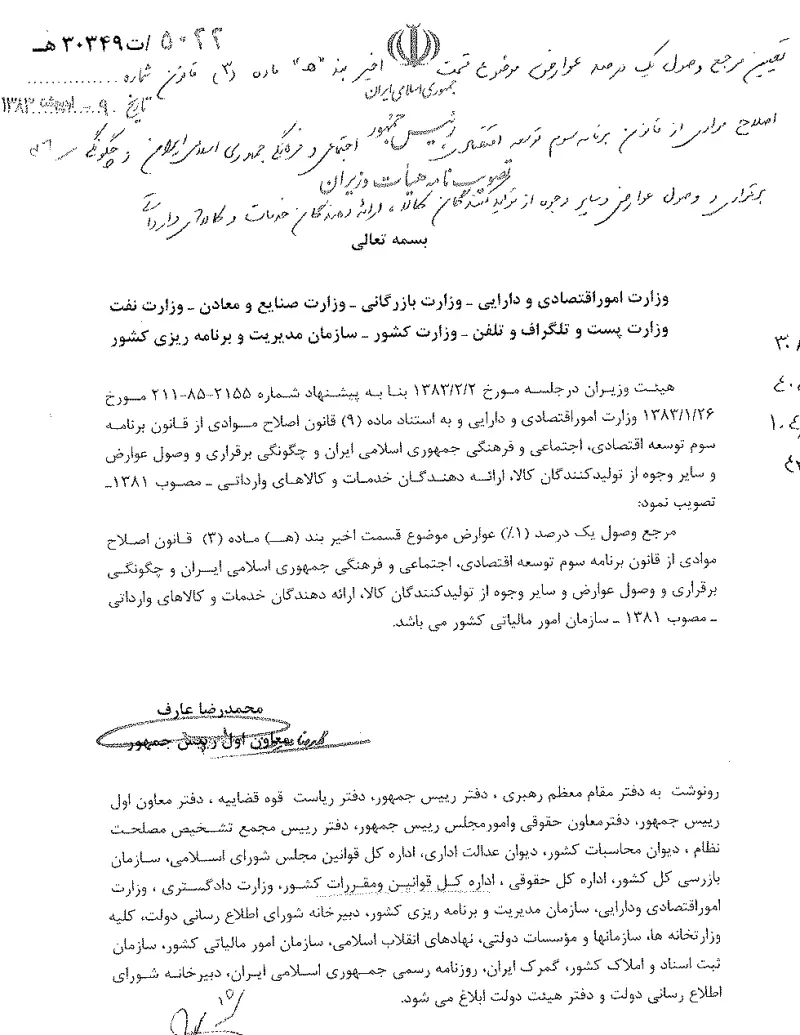 ۵۰۲۲ /ت۳۰۳۴۹ هـ
تعیین مرجع وصول یک درصد عوارض موضوع قسمت اخیر بند "هـ" ماده (۳) قانون
شماره
جمهوری اسلامی ایران
تاریخ ۹ - اردیبهشت ۱۳۸۳
رئیس جمهور
اصلاح موادی از قانون برنامه سوم توسعه اقتصادی، اجتماعی و فرهنگی جمهوری اسلامی ایران و چگونگی
تصویب نامه هیأت وزیران
برقراری و وصول عوارض و سایر وجوه از تولیدکنندگان کالا، ارائه دهندگان خدمات و کالاهای وارداتی
بسمه تعالی
وزارت اموراقتصادی و دارایی ـ وزارت بازرگانی ـ وزارت صنایع و معادن ـ وزارت نفت
وزارت پست و تلگراف و تلفن ـ وزارت کشور ـ سازمان مدیریت و برنامه ریزی کشور
هیئت وزیران درجلسه مورخ ۱۳۸۳/۲/۲ بنا به پیشنهاد شماره ۲۱۵۵-۸۵-۲۱۱ مورخ
۱۳۸۳/۱/۲۶ وزارت اموراقتصادی و دارایی و به استناد ماده (۹) قانون اصلاح موادی از قانون برنامه
سوم توسعه اقتصادی، اجتماعی و فرهنگی جمهوری اسلامی ایران و چگونگی برقراری و وصول عوارض
و سایر وجوه از تولیدکنندگان کالا، ارائه دهندگان خدمات و کالاهای وارداتی ـ مصوب ۱۳۸۱ـ
تصویب نمود:
مرجع وصول یک درصد (۱٪) عوارض موضوع قسمت اخیر بند (هـ) ماده (۳) قانون اصلاح
موادی از قانون برنامه سوم توسعه اقتصادی، اجتماعی و فرهنگی جمهوری اسلامی ایران و چگونگی
برقراری و وصول عوارض و سایر وجوه از تولیدکنندگان کالا، ارائه دهندگان خدمات و کالاهای وارداتی
ـ مصوب ۱۳۸۱ ـ سازمان امور مالیاتی کشور می باشد.
محمدرضا عارف
معاون اول رییس جمهور
رونوشت به دفتر مقام معظم رهبری ، دفتر رییس جمهور، دفتر ریاست قوه قضاییه ، دفتر معاون اول
رییس جمهور، دفترمعاون حقوقی وامورمجلس رییس جمهور، دفتر رییس مجمع تشخیص مصلحت
نظام ، دیوان محاسبات کشور، دیوان عدالت اداری، اداره کل قوانین مجلس شورای اسلامی، سازمان
بازرسی کل کشور، اداره کل حقوقی ، اداره کل قوانین ومقررات کشور، وزارت دادگستری ، وزارت
اموراقتصادی ودارایی، سازمان مدیریت و برنامه ریزی کشور، دبیرخانه شورای اطلاع رسانی دولت، کلیه
وزارتخانه ها، سازمانها و مؤسسات دولتی، نهادهای انقلاب اسلامی، سازمان امور مالیاتی کشور، سازمان
ثبت اسناد و املاک کشور، گمرک ایران، روزنامه رسمی جمهوری اسلامی ایران، دبیرخانه شورای
اطلاع رسانی دولت و دفتر هیئت دولت ابلاغ می شود.